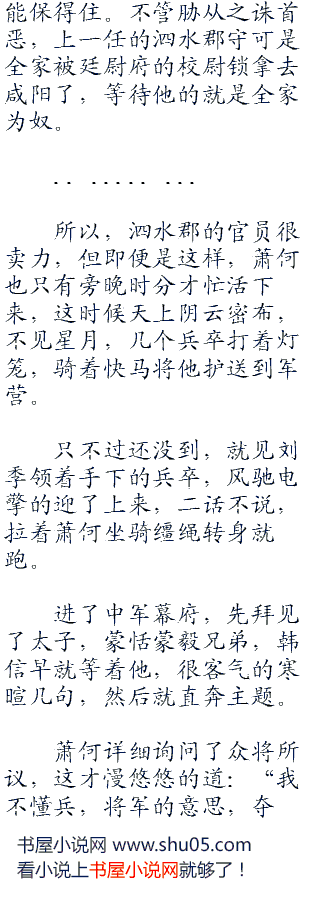 能保得住。不管胁从之诛首
恶，上一任的泗水郡守可是
全家被廷尉府的校尉锁拿去
咸阳了，等待他的就是全家
为奴。
.. ..... ...
所以，泗水郡的官员很
卖力，但即便是这样，萧何
也只有旁晚时分才忙活下
来，这时候天上阴云密布，
不见星月，几个兵卒打着灯
笼，骑着快马将他护送到军
营。
只不过还没到，就见刘
季领着手下的兵卒，风驰电
掣的迎了上来，二话不说，
拉着萧何坐骑缰绳转身就
跑。
进了中军幕府，先拜见
了太子，蒙恬蒙毅兄弟，韩
信早就等着他，很客气的寒
暄几句，然后就直奔主题。
萧何详细询问了众将所
议，这才慢悠悠的道：“我
不懂兵，将军的意思，夺
书屋小说网 www.shu05.com
看小说上书屋小说网就够了！